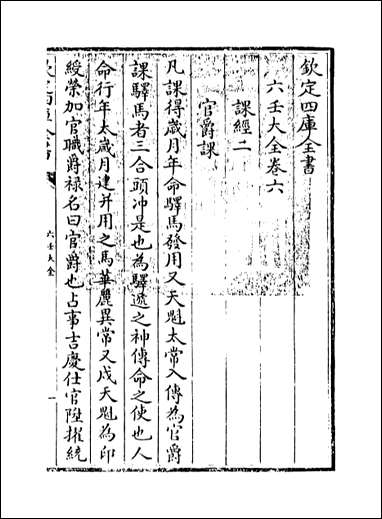 欽定四庫全書
六壬大全卷六
課經二
官爵課
凡課得歲月年命驛馬發用又天魁太常入傳為官爵
課驛馬者三合頭冲是也為驛遞之神傳命之使也人
命行年太歲月建并用之馬華麗異常又戌天魁為印
綬榮加官職爵祿名曰官爵也占事吉慶仕官陞擢統
六壬大全
一